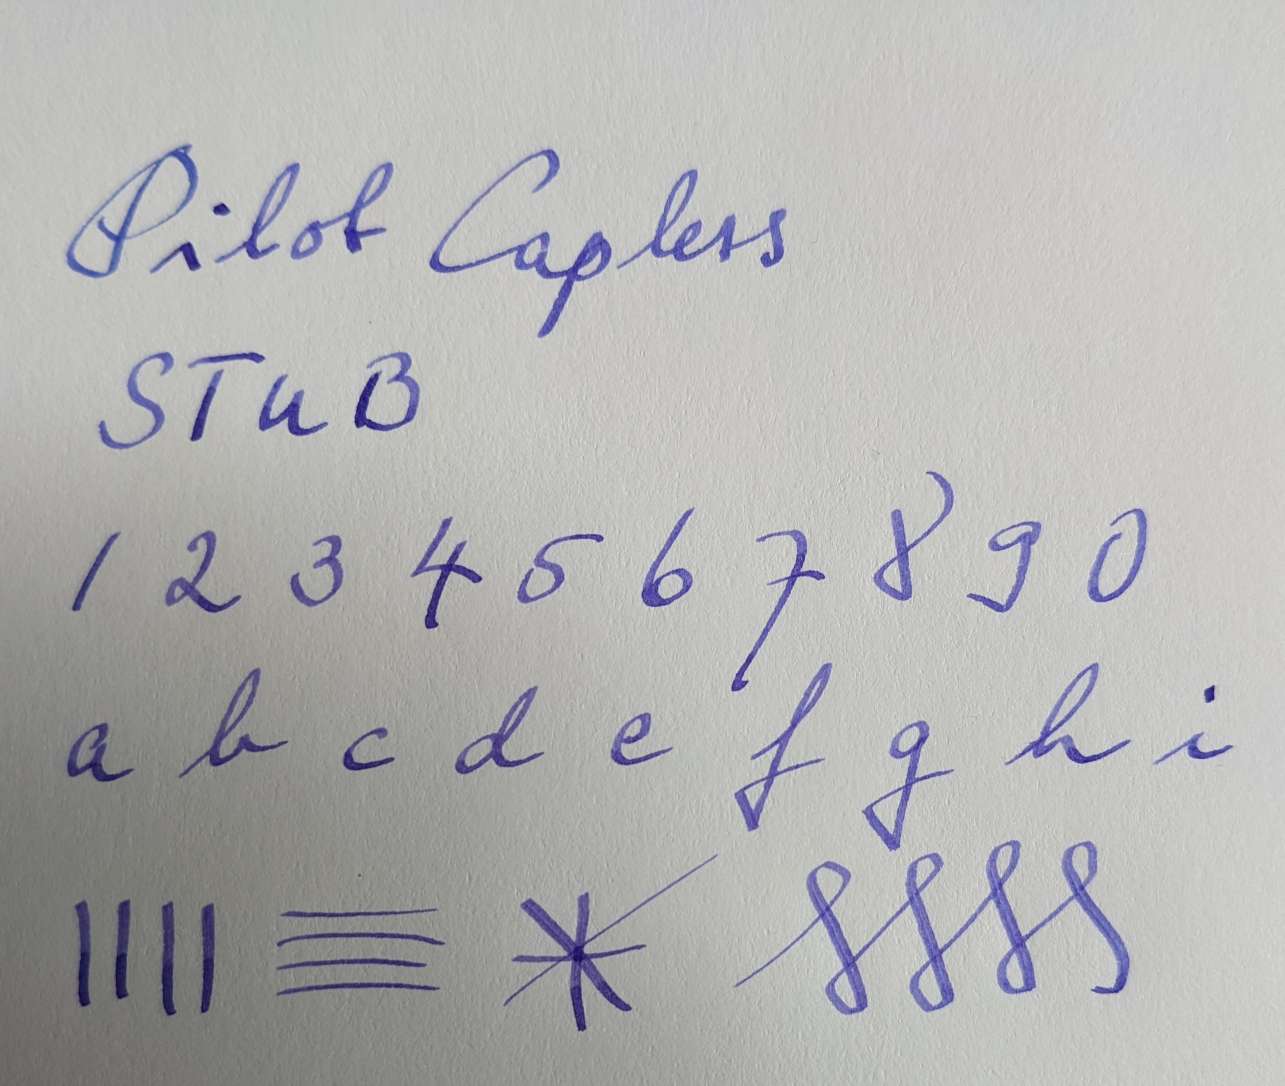 Pilot Capless
STuB
1 2 3 4 5 6 7 8 9 0
a b c d e f g h i